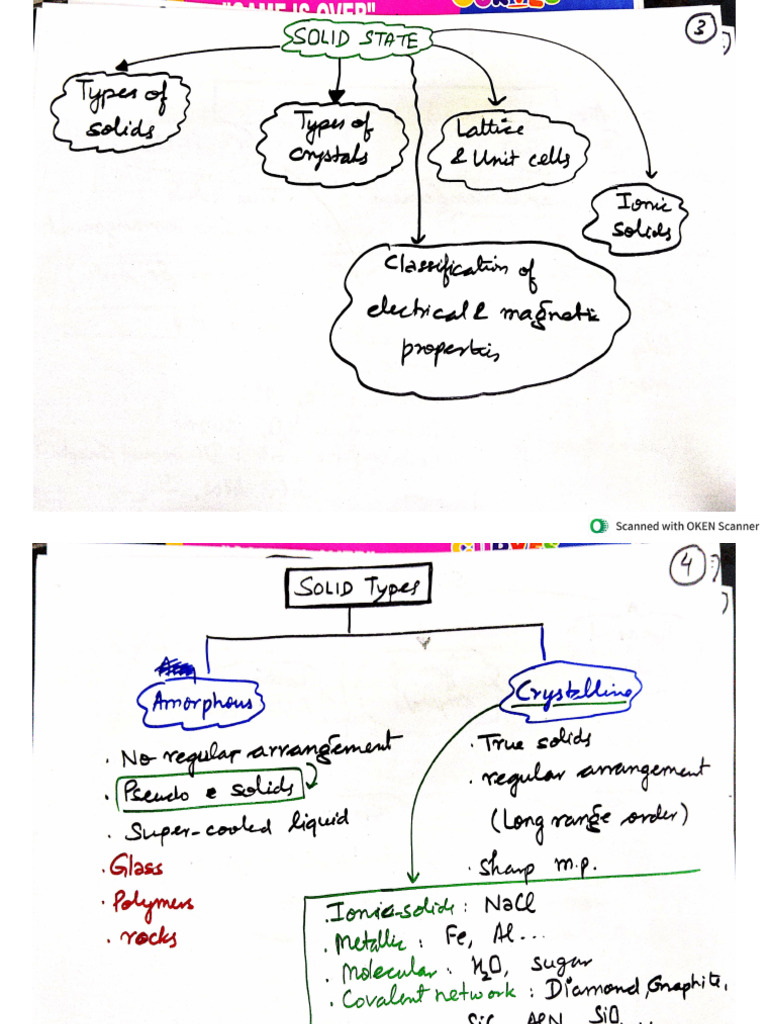 "GAME IS OVER"
3
SOLID STATE
Types of
solids
Types of
crystals
Lattice
& Unit cells
Ionic
solids
Classification of
electrical & magnetic
properties
Scanned with OKEN Scanner
4
SOLID Types
Amorphous
Crystalline
. No regular arrangement
. Pseudo solids
. Super-cooled liquid
. Glass
. Polymers
. rocks
. True solids
. regular arrangement
(Long range order)
. Sharp m.p.
. Ionic-solids : NaCl
. Metallic : Fe, Al...
. Molecular : H₂O, sugar
. Covalent network : Diamond, Graphite,
SiC, AlN, SiO₂